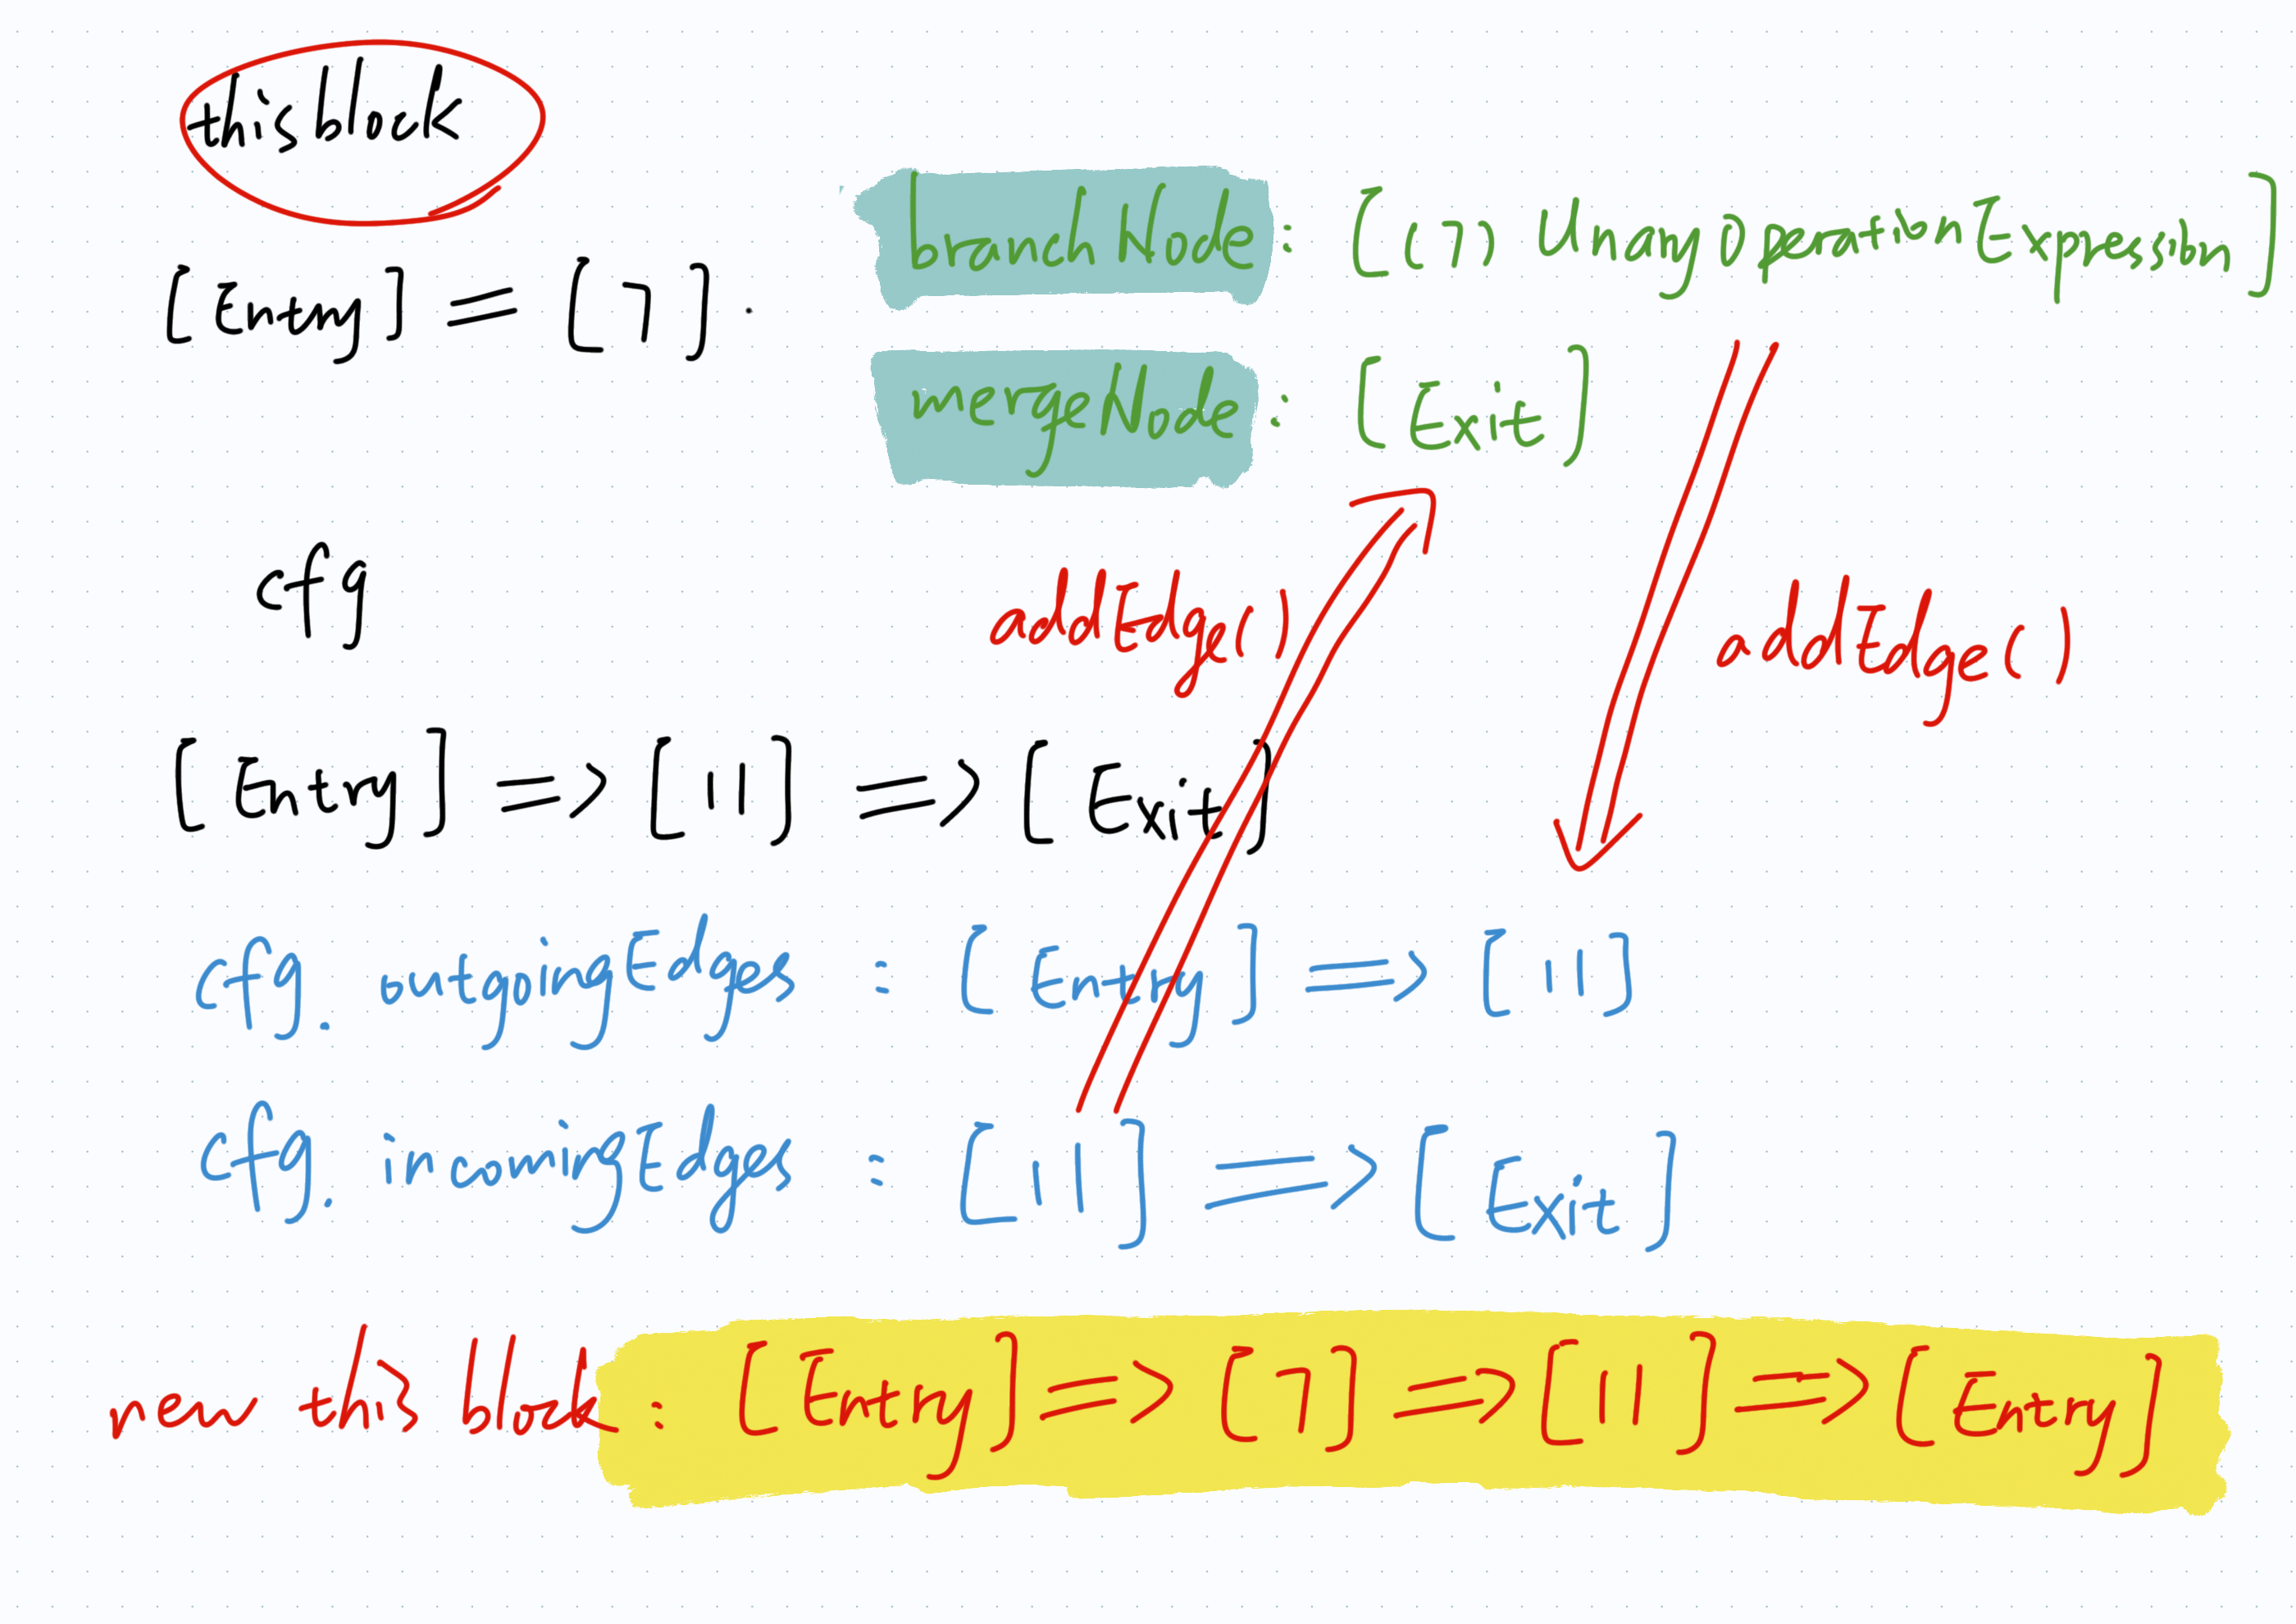 this block
branchNode : [(7) UnaryOperationExpression]
[Entry] = [7].
mergeNode : [Exit]
cfg
addEdge()
addEdge()
[Entry] => [11] => [Exit]
cfg. outgoingEdges : [Entry] => [11]
cfg. incomingEdges : [11] => [Exit]
new this block : [Entry] => [7] => [11] => [Entry]